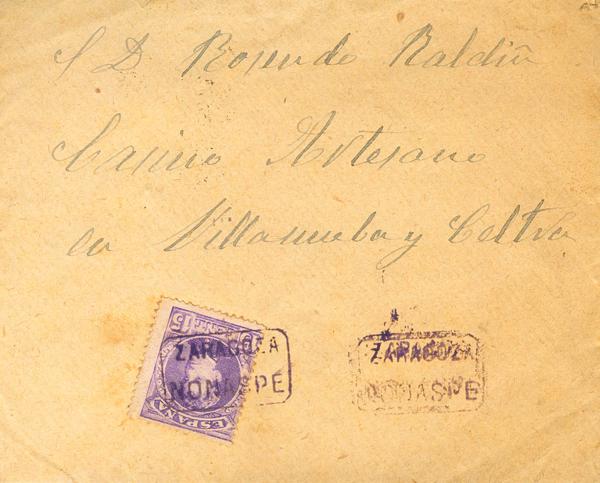 S D Rosendo Baldin
Casino Artesano
en Villanueba y Celtru
15
ESPAÑA
ZARAGOZA
NONASPE
ZARAGOZA
NONASPE